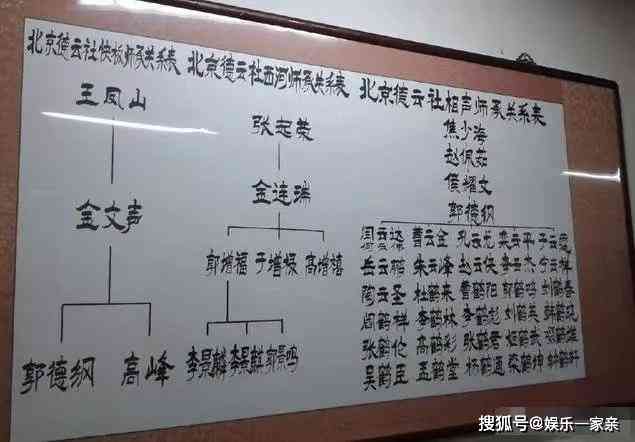 北京德云社快板师承关系表
王凤山
金文声
郭德纲 高峰
北京德云社西河师承关系表
张起荣
金连瑞
郭增福 于增禄 高增禧
李景麟 郭景鸣
北京德云社相声师承关系表
焦少海
赵佩茹
侯耀文
郭德纲
曹云金 孔云龙
岳云鹏 朱云峰 赵云侠 李云杰 宁云祥
陶云圣 杜鹤来 曹鹤阳 刘鹤春
阎鹤祥 李鹤林 李鹤彪 刘鹤英
张鹤伦 高鹤彩
吴鹤臣 孟鹤堂 杨鹤通 栾鹤坤
搜狐号@娱乐一家亲